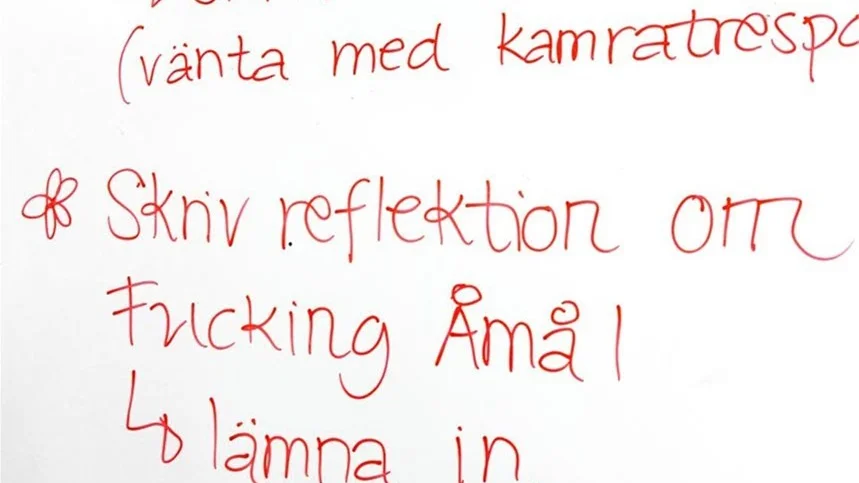 (vänta med kamratrespo
* Skriv reflektion om
Fucking Åmål
↳ lämna in